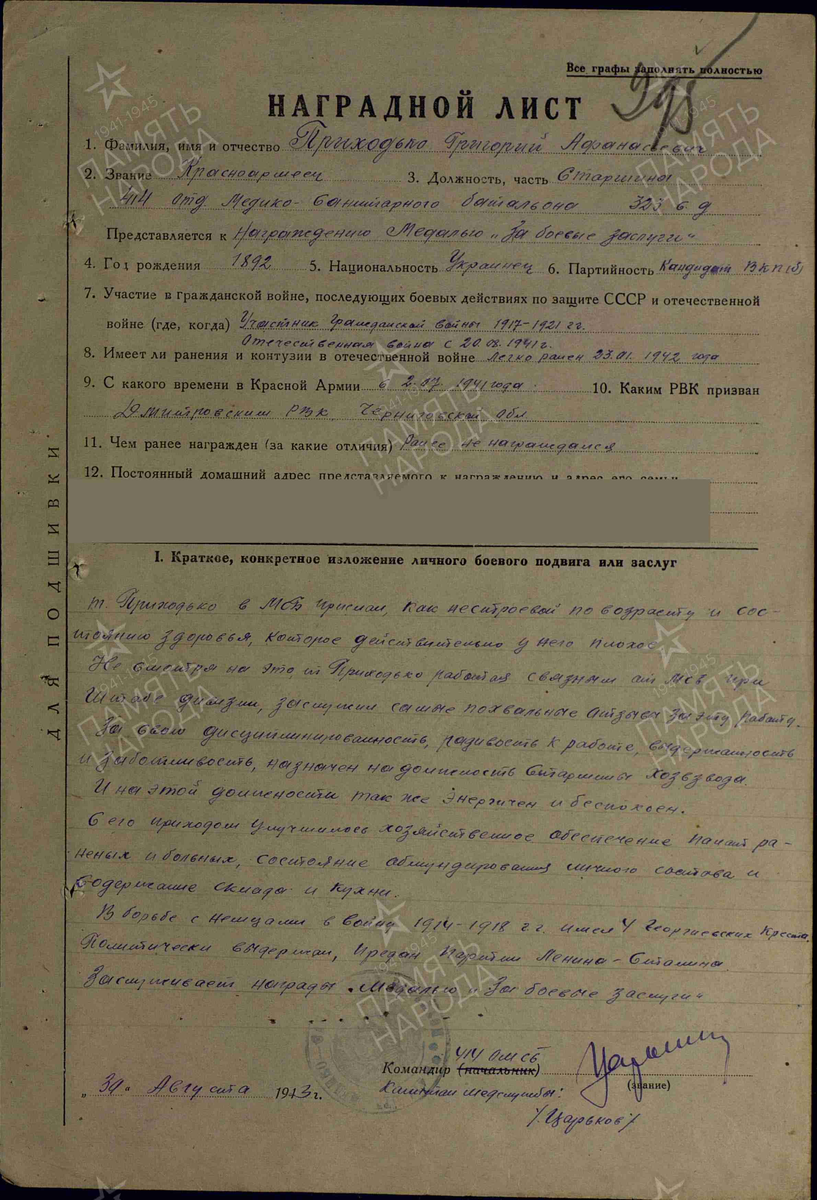 Все графы заполнять полностью
НАГРАДНОЙ ЛИСТ
1. Фамилия, имя и отчество Приходько Григорий Афанасьевич
2. Звание Красноармеец 3. Должность, часть Старшина
414 Отд Медико-Санитарного батальона 323 с д
Представляется к Награждению Медалью „За боевые заслуги“
4. Год рождения 1892 5. Национальность Украинец 6. Партийность Кандидат ВКП(б)
7. Участие в гражданской войне, последующих боевых действиях по защите СССР и отечественной
войне (где, когда) Участник Гражданской войны 1917-1921 гг.
Отечественная война с 20.08.1941г.
8. Имеет ли ранения и контузии в отечественной войне Легко ранен 23.01.1942 года
9. С какого времени в Красной Армии с 2-07 1941 года. 10. Каким РВК призван
Дмитровским РВК Черниговской обл
11. Чем ранее награжден (за какие отличия) Ранее не награждался
12. Постоянный домашний адрес представляемого к награждению и адрес его семьи
ДЛЯ ПОДШИВКИ
I. Краткое, конкретное изложение личного боевого подвига или заслуг
т. Приходько в МСБ прислан, как нестроевой по возрасту и сос-
тоянию здоровья, которое действительно у него плохое.
Не смотря на это т Приходько работая связным от МСБ при
Штабе дивизии, заслужил самые похвальные отзывы за эту работу.
За свою дисциплинированность, радивость к работе, выдержанность
и заботливость, назначен на должность Старшины хозвзвода.
И на этой должности так же энергичен и беспокоен.
С его приходом улучшилось хозяйственное обеспечение палат ра-
неных и больных, состояние обмундирования личного состава и
содержание склада и кухни.
В борьбе с немцами в войну 1914-1918 гг. имел 4 Георгиевских Креста.
Политически выдержан, предан Партии Ленина-Сталина.
Заслуживает награды „Медалью „За боевые заслуги“
Командир (начальник) 414 ОМСБ
Капитан медслужбы: (звание)
„30„ Августа 1943г.
/Царьков/
ПАМЯТЬ НАРОДА
1941-1945